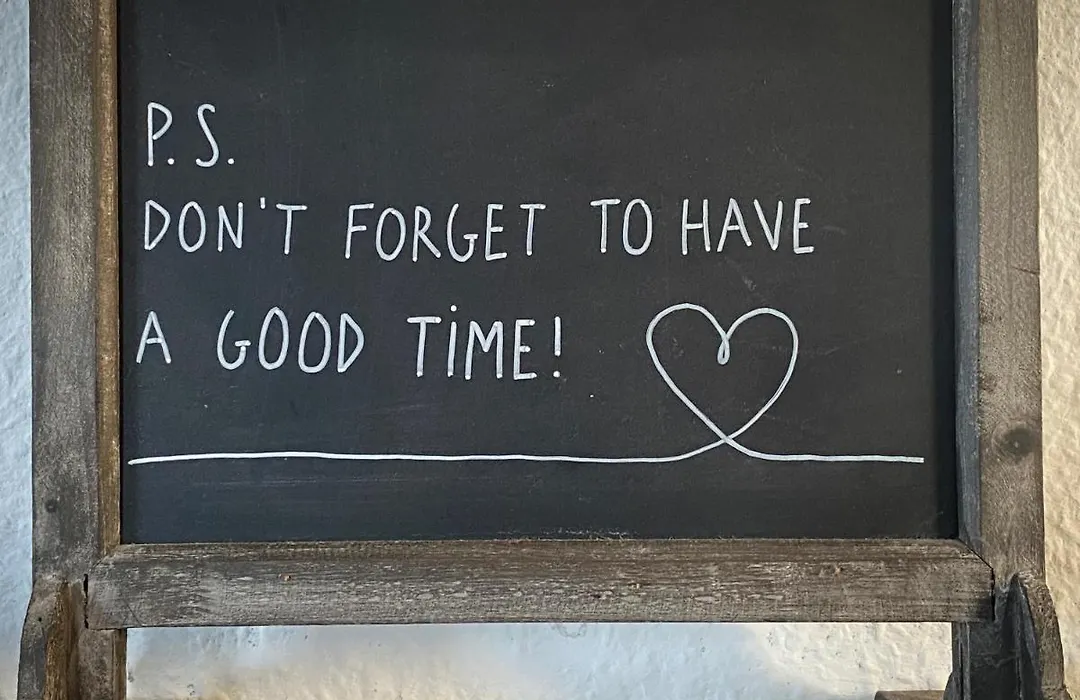 P.S.
DON'T FORGET TO HAVE
A GOOD TiME!